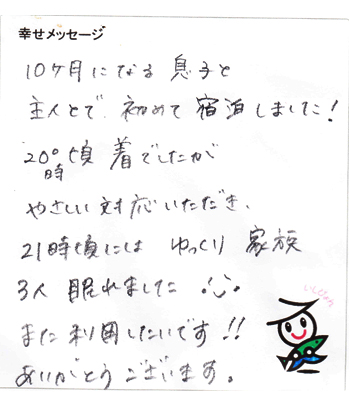 幸せメッセージ
10ヶ月になる息子と
主人とで、初めて宿泊しました!
20時頃着でしたが
やさしい対応いただき、
21時頃にはゆっくり家族
3人眠れました
また利用したいです!!
ありがとうございます。